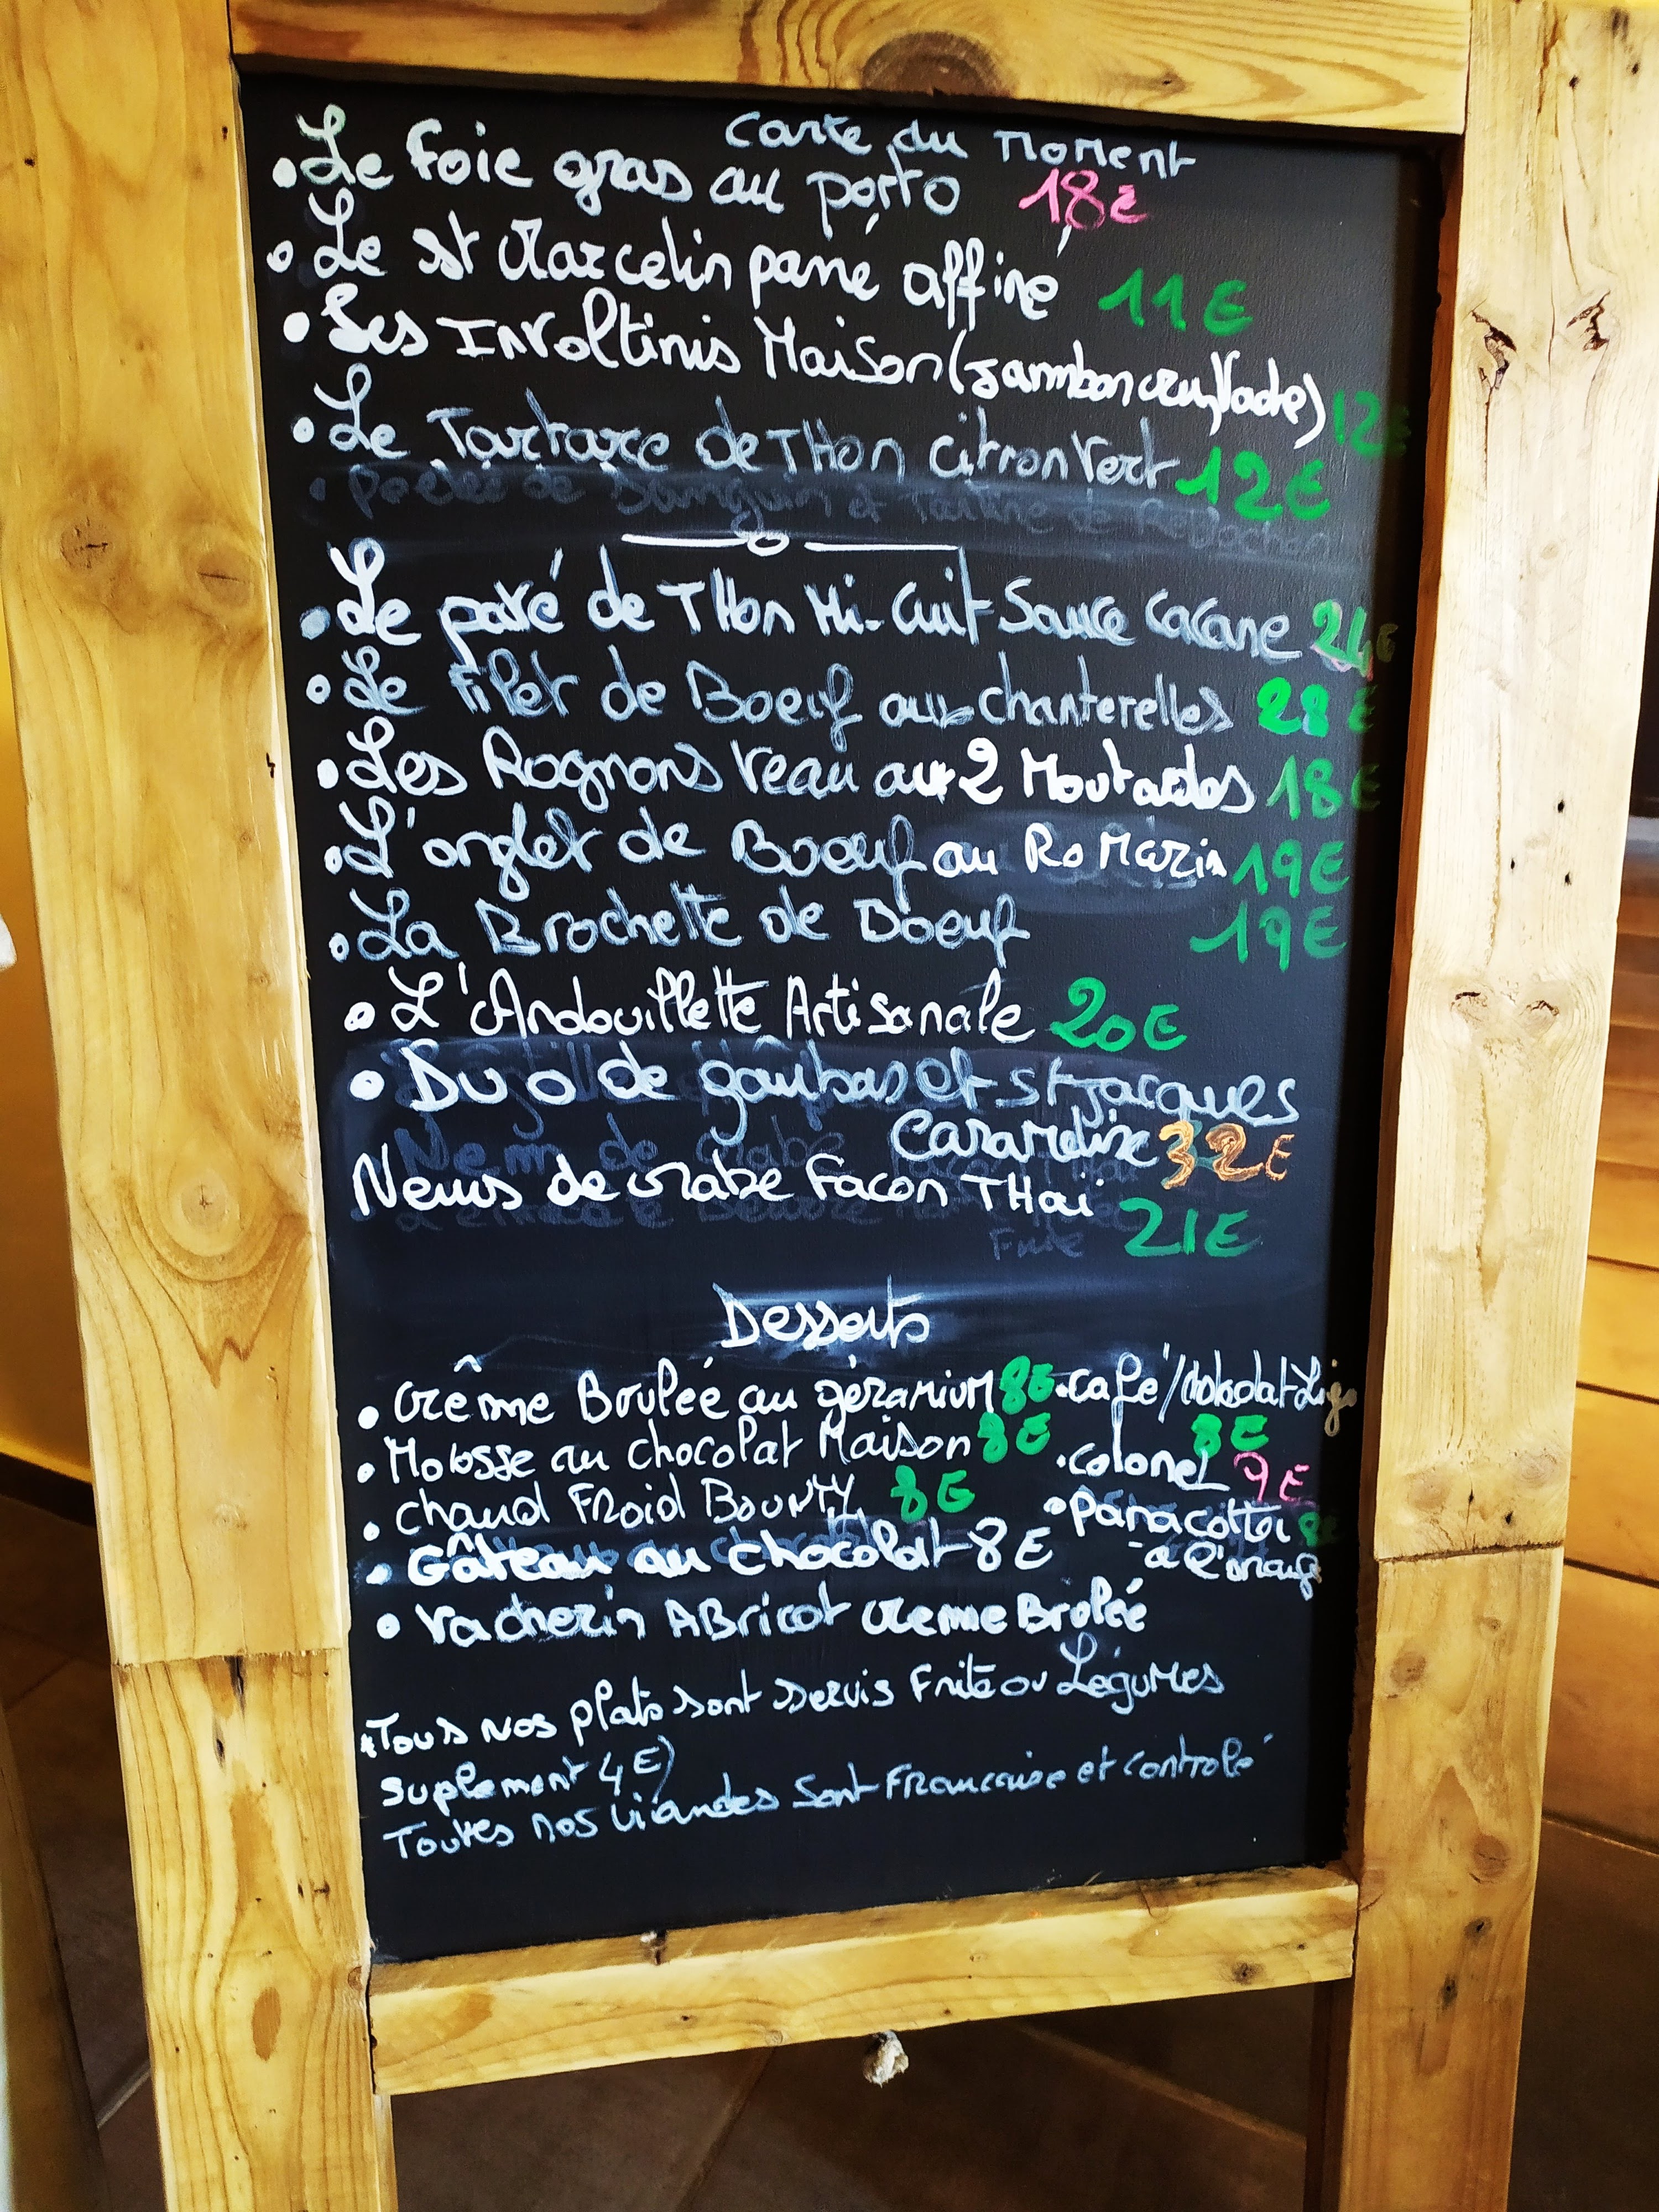 Carte du Moment
• Le foie gras au porto 18€
• Le st Marcelin pané affiné 11€
• Les Involtinis Maison (Jambon cru, 12€
• Le Tartare de Thon citron vert 12€
• Le pavé de Thon Mi-Cuit Sauce 24€
• Le Filet de Boeuf aux chanterelles 28€
• Les Rognons Veau aux 2 Moutardes 18€
• L'onglet de Boeuf au RoMarin 19€
• La Brochette de Boeuf 19€
• L'Andouillette Artisanale 20€
• Duo de gambas et st jacques
Caramelise 32€
Nems de crabe Facon THaï 21€
Desserts
• Crême Brulée au géranium 8€
• Mousse au chocolat Maison 8€
• chaud Froid Bounty 8€
• Gâteau au chocolat 8€
• Vacherin ABricot creme Brolée
• café/
8€
• colonel 9€
• panacotta 8€
à l'orange
*Tous nos plats sont servis Frite ou Légumes
suplement 4€)
Toutes nos viandes sont Francaise et controlé